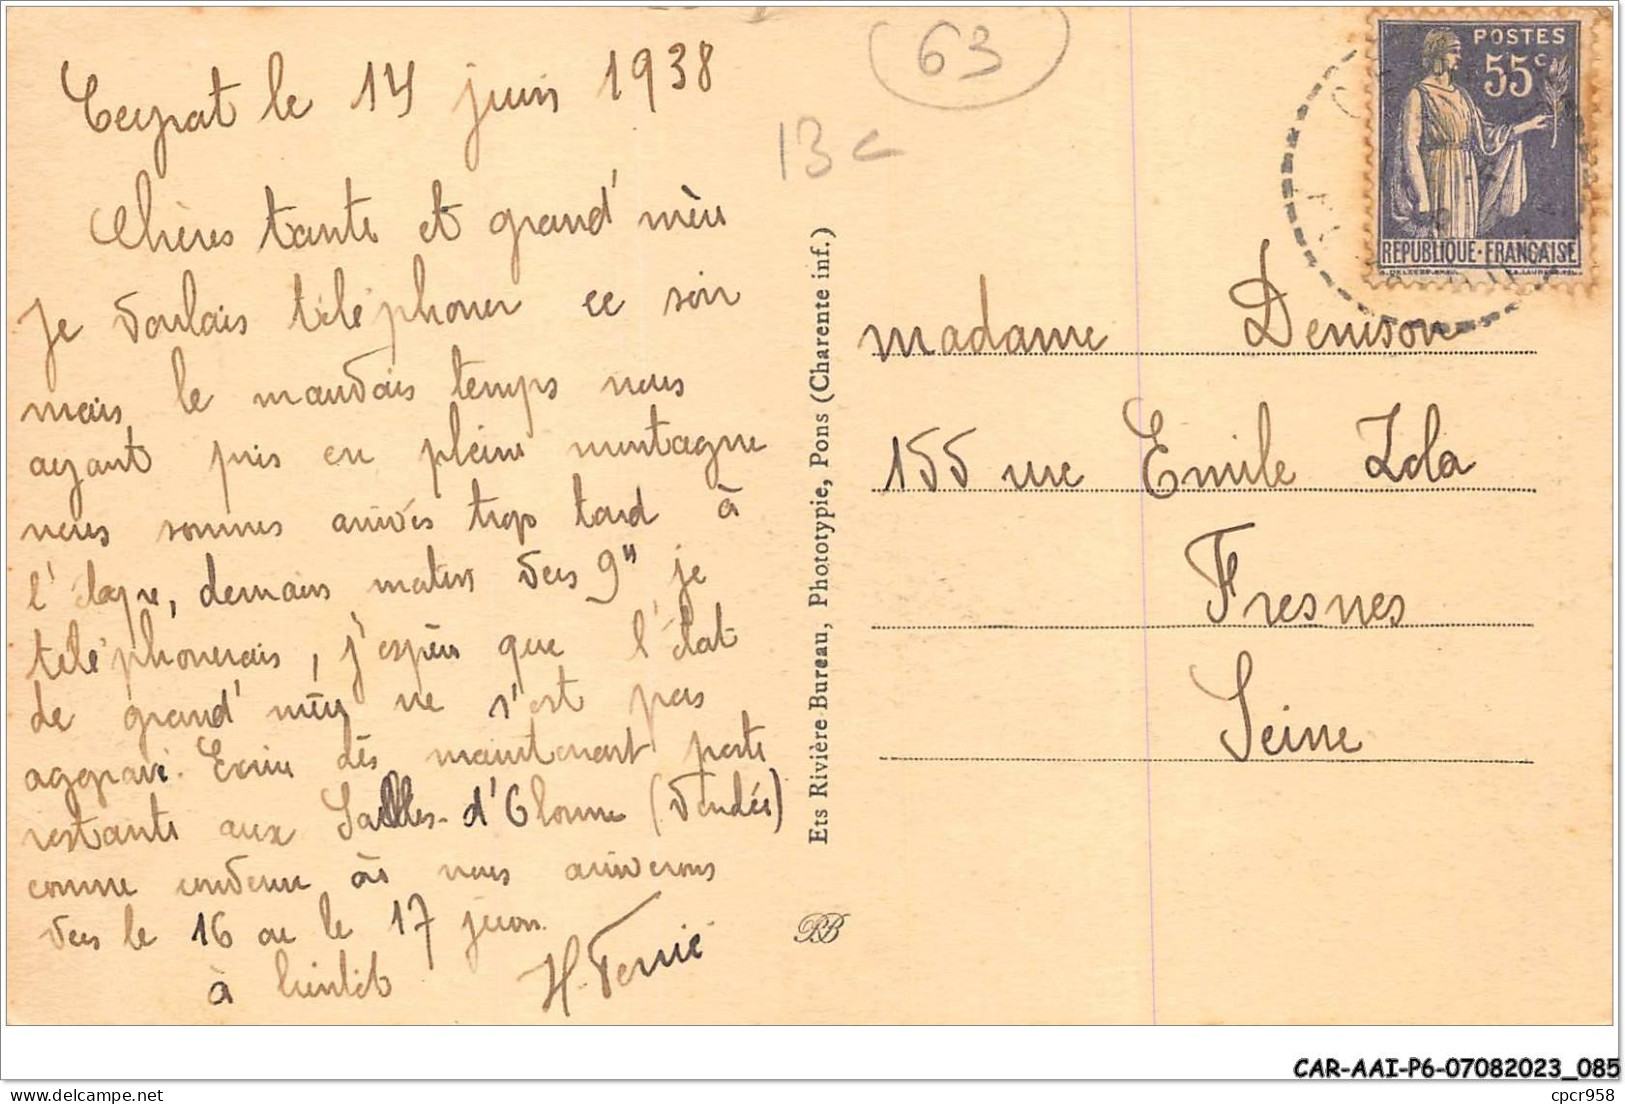 Ceyrat le 14 juin 1938
Chères tante et grand'mère
Je voulais téléphoner ce soir
mais le mauvais temps nous
ayant pris en pleine montagne
nous sommes arrivés trop tard à
l'étape, demain matin vers 9" je
téléphonerais, j'espère que l'état
de grand'mère ne s'est pas
aggravé. Ecrire dès maintenant poste
restante aux Salles-d'Olonne (Vendée)
comme convenu où nous arriverons
vers le 16 ou le 17 juin.
à bientôt H. Ferrié
63
13c
Ets Rivière-Bureau, Phototypie, Pons (Charente inf.)
RB
POSTES
55c
REPUBLIQUE-FRANÇAISE
madame Denison
155 rue Emile Zola
Fresnes
Seine
CAR-AAI-P6-07082023_085
cpcr958